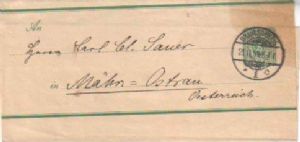 An
Herrn Carl Cl. Sauer
in Mähr=Ostrau
Oesterreich.